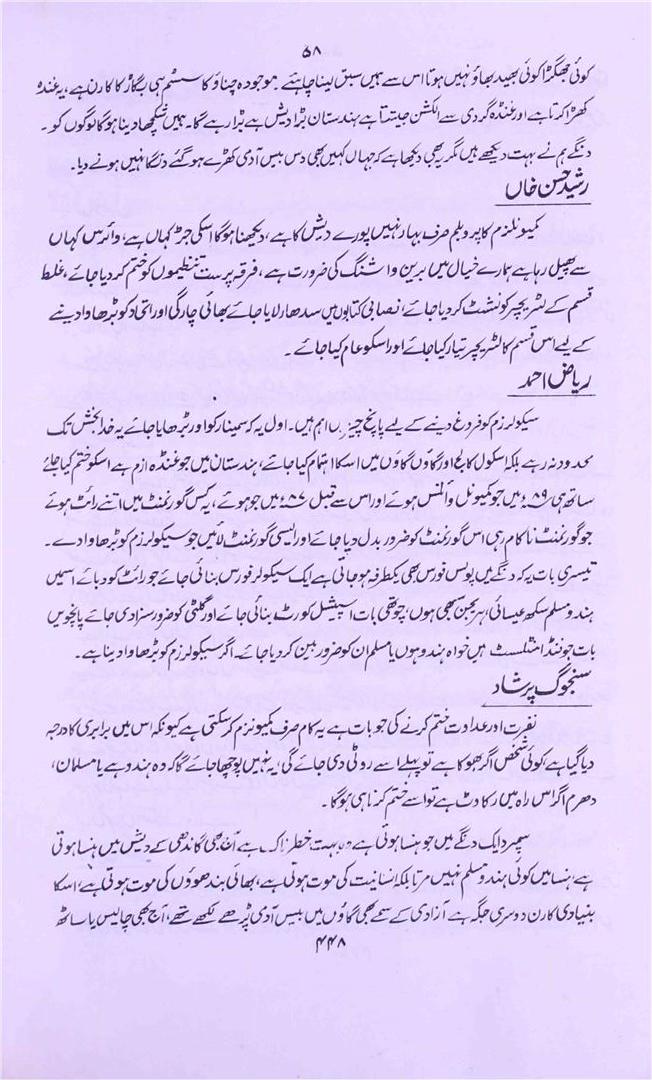 ۵۸
کوئی جھگڑا کوئی بھید بھاؤ نہیں ہوتا اس سے ہمیں سبق لینا چاہئے۔ موجودہ چناؤ کا سسٹم ہی بگاڑ کا کارن ہے، یہ غنڈہ
کھڑا کرتا ہے اور غنڈہ گردی سے الکشن جیتتا ہے ہندستان بڑا دیش ہے بڑا رہے گا۔ ہمیں سُکھا دینا ہوگا لوگوں کو۔
دنگے ہم نے بہت دیکھے ہیں مگر یہ بھی دیکھا ہے کہ جہاں کہیں بھی دس بیس آدمی کھڑے ہو گئے دنگا نہیں ہونے دیا۔
رشید حسن خاں
کمیونلزم کا پروبلم صرف بہار نہیں پورے دیش کا ہے، دیکھنا ہوگا اسکی جڑ کہاں ہے، وائرس کہاں
سے پھیل رہا ہے ہمارے خیال میں برین واشنگ کی ضرورت ہے، فرقہ پرست تنظیموں کو ختم کر دیا جائے، غلط
قسم کے لٹریچر کو نشٹ کر دیا جائے، نصابی کتابوں میں سدھار لایا جائے بھائی چارگی اور اتحاد کو بڑھاوا دینے
کے لیے اس قسم کا لٹریچر تیار کیا جائے اور اسکو عام کیا جائے۔
ریاض احمد
سیکولرزم کو فروغ دینے کے لیے پانچ چیزیں اہم ہیں۔ اول یہ کہ سیمینار کو اور بڑھایا جائے یہ خدا بخش تک
محدود نہ رہے بلکہ اسکول کالج اور گاؤں گاؤں میں اسکا اہتمام کیا جائے، ہندستان میں جو غنڈہ ازم ہے اسکو ختم کیا جائے
ساتھ ہی ۸۹ء میں جو کمیونل وائلنس ہوئے اور اس سے قبل ۸۷ء میں جو ہوئے، یہ کس گورنمنٹ میں اتنے رائٹ ہوئے
جو گورنمنٹ ناکام رہی اس گورنمنٹ کو ضرور بدل دیا جائے اور ایسی گورنمنٹ لائیں جو سیکولرزم کو بڑھاوا دے۔
تیسری بات یہ کہ دنگے میں پولس فورس بھی یکطرفہ ہو جاتی ہے ایک سیکولر فورس بنائی جائے جو رائٹ کو دبائے اسمیں
ہندو مسلم سکھ عیسائی، ہریجن سبھی ہوں، چوتھی بات اسپیشل کورٹ بنائی جائے اور گلٹی کو ضرور سزا دی جائے پانچویں
بات جو فنڈامنٹلسٹ ہیں خواہ ہندو ہوں یا مسلم ان کو ضرور بین کر دیا جائے۔ اگر سیکولرزم کو بڑھاوا دینا ہے۔
سنجوگ پرشاد
نفرت اور عداوت ختم کرنے کی جو بات ہے یہ کام صرف کمیونزم کر سکتی ہے کیونکہ اس میں برابری کا درجہ
دیا گیا ہے کوئی شخص اگر بھوکا ہے تو پہلے اسے روٹی دی جائے گی، یہ نہیں پوچھا جائے گا کہ وہ ہندو ہے یا مسلمان،
دھرم اگر اس راہ میں رکاوٹ ہے تو اسے ختم کرنا ہی ہوگا۔
سمپردایک دنگے میں جو ہنسا ہوتی ہے وہ بہت خطرناک ہے آج بھی گاندھی کے دیش میں ہنسا ہوتی
ہے ہنسا میں کوئی ہندو مسلم نہیں مرتا بلکہ انسانیت کی موت ہوتی ہے، بھائی بندھوؤں کی موت ہوتی ہے، اسکا
بنیادی کارن دوسری جگہ ہے آزادی کے سمے بھی گاؤں میں بیس آدمی پڑھے لکھے تھے، آج بھی چالیس یا ساٹھ
۴۴۸